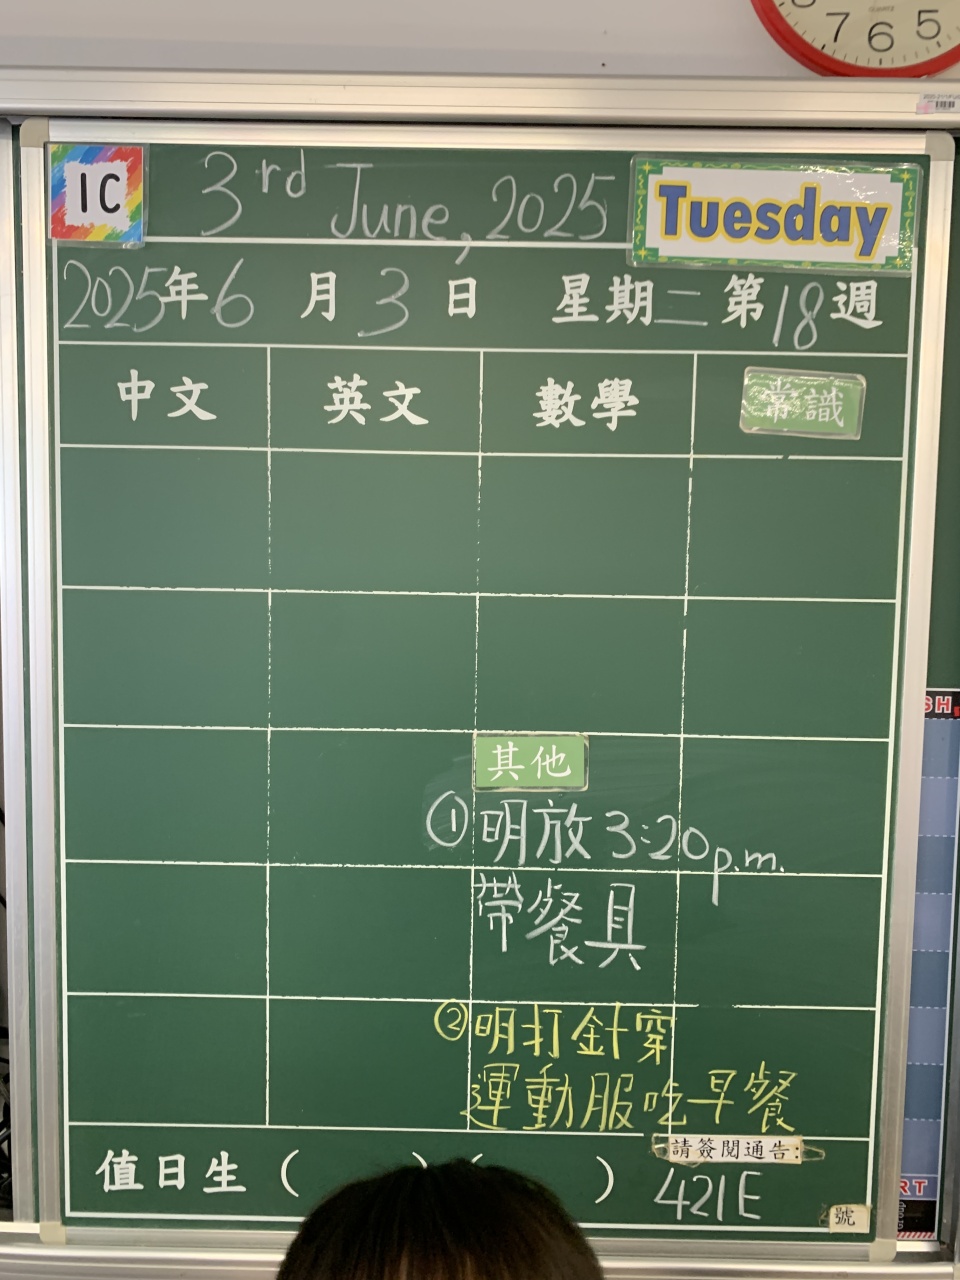 7 6 5
1C
3rd June, 2025
Tuesday
2025年6月3日 星期二 第18週
中文 英文 數學 常識
其他
① 明放3:20p.m.
帶餐具
② 明打針穿
運動服吃早餐
請簽閱通告:
值日生( )( ) 421E
號
SH,
RT